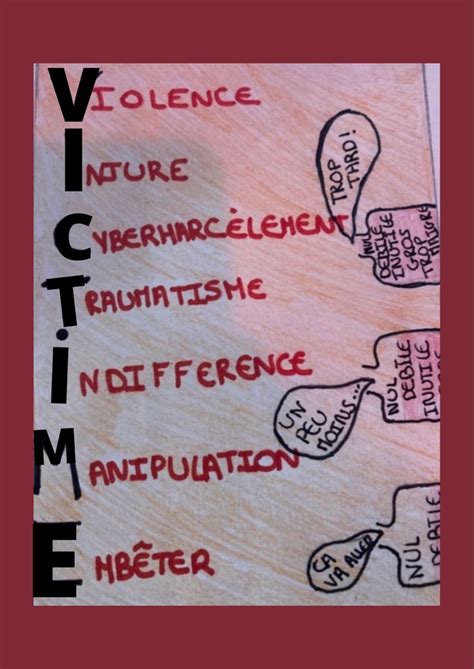 VIOLENCE
INJURE
CYBERHARCÈLEMENT
TRAUMATISME
INDIFFERENCE
MANIPULATION
EMBÊTER
TROP
TARD!
DEBILE
INUTILE
GROS
TROP
UN
PEU
MOINS...
NUL
DEBILE
INUTILE
ÇA
VA ALLER
NUL
DEBILE